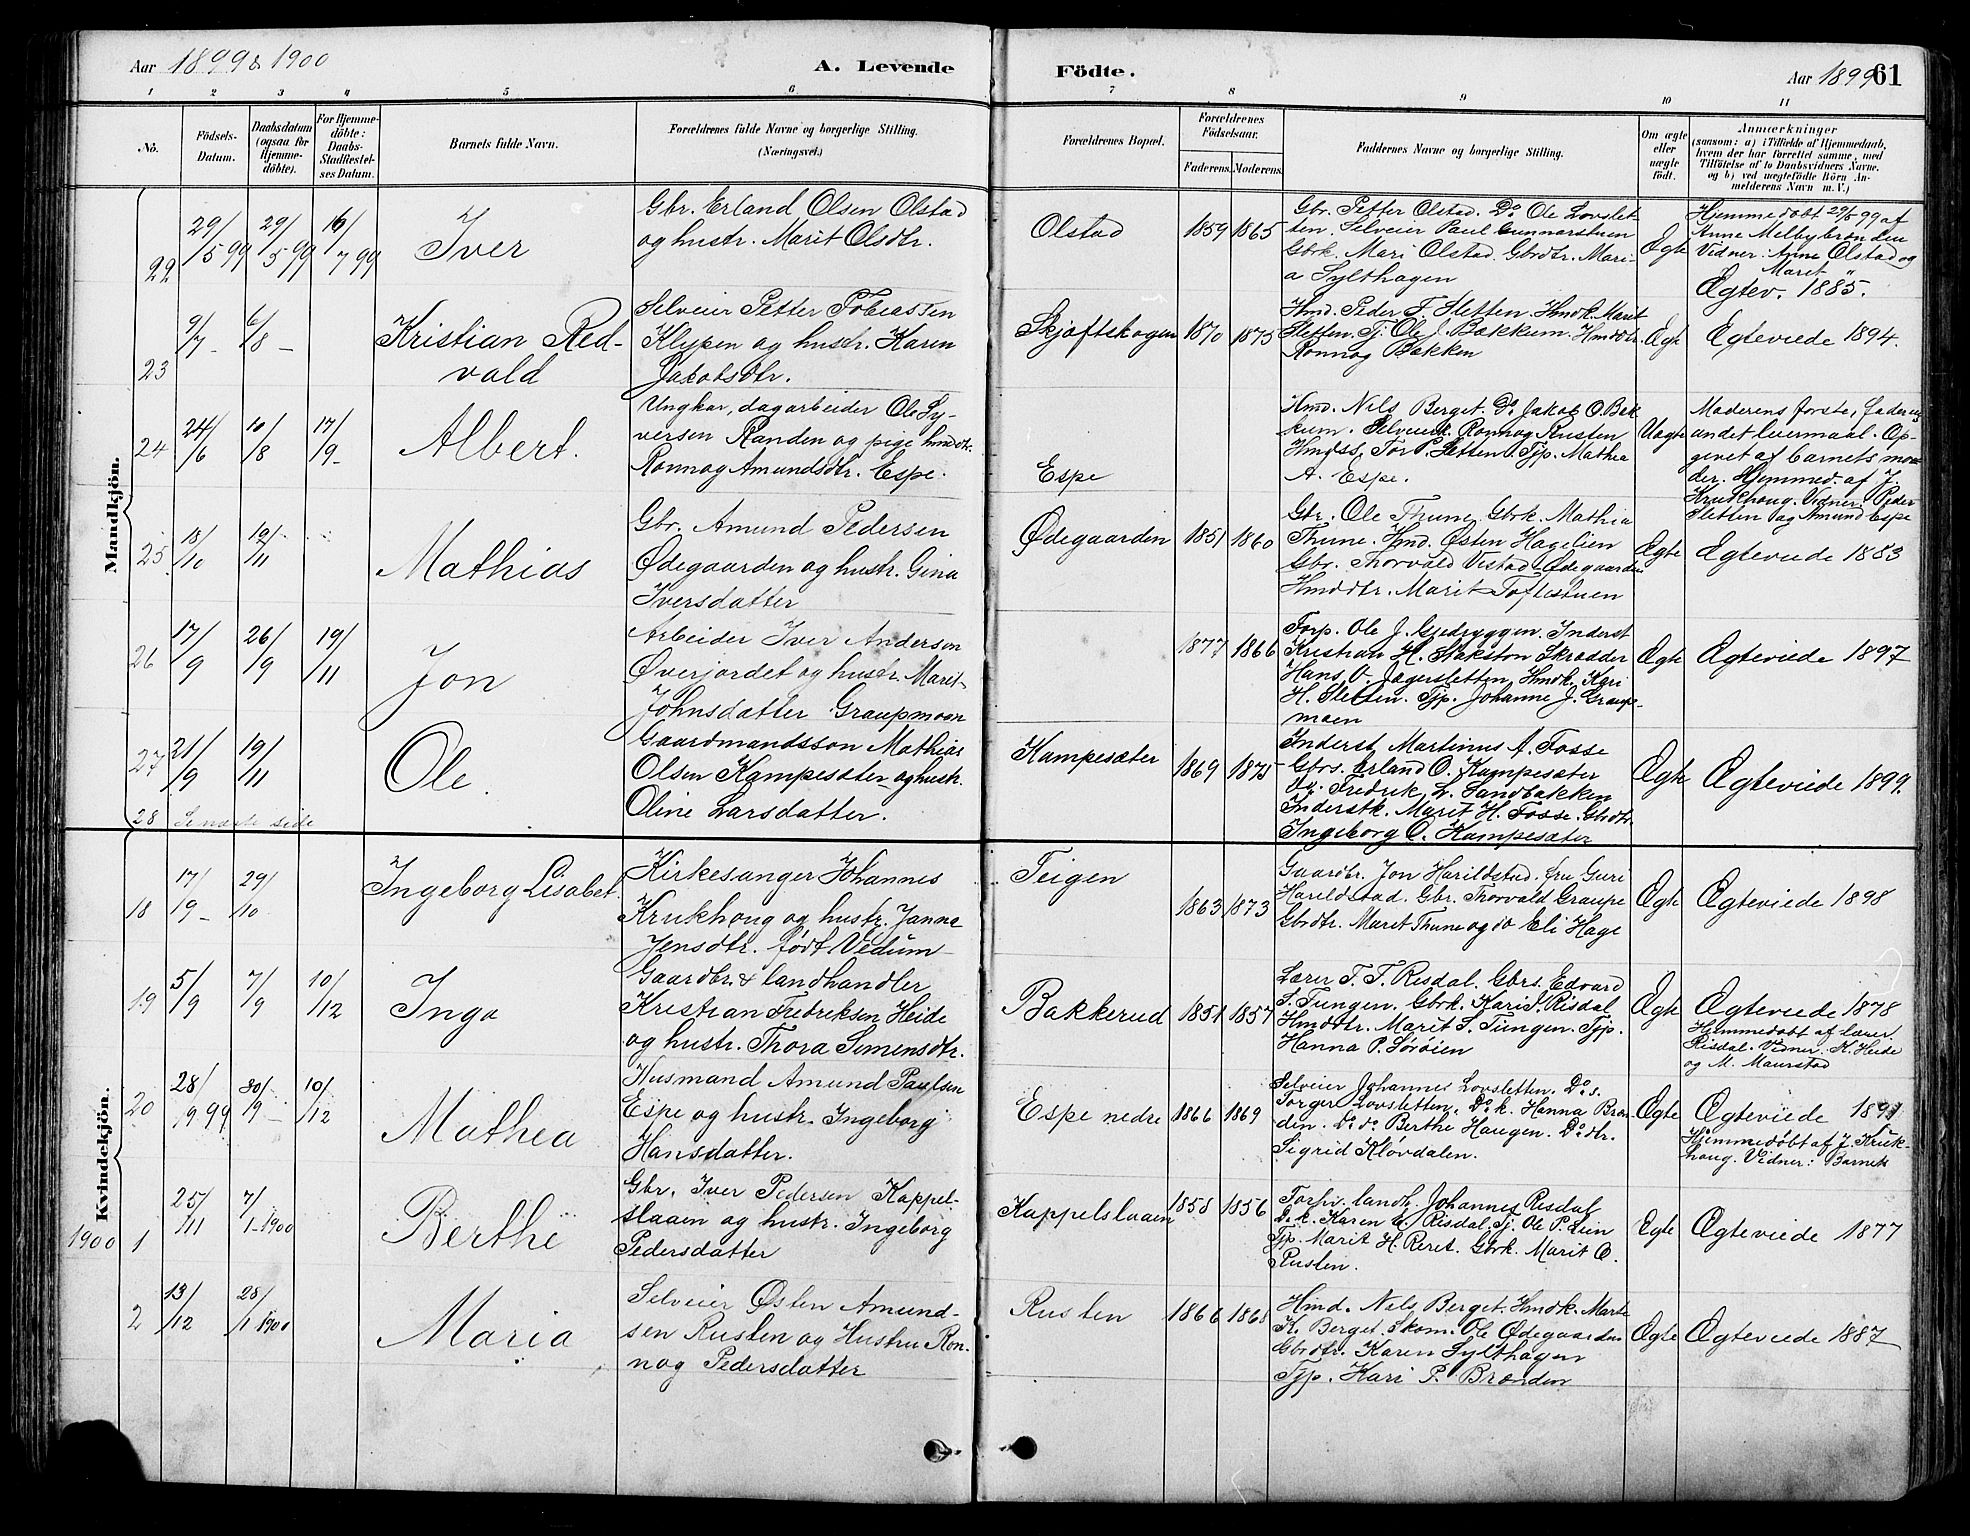 Aar 1899 & 1900
A. Levende
Födte.
Aar 1899
61
1 2 3 4 5 6 7 8 9 10 11
No.
Födsels-
Datum.
Daabsdatum
(ogsaa for
Hjemme-
döbte).
For Hjemme-
döbte:
Daabs-
Stadfæstel-
ses Datum.
Barnets fulde Navn.
Forældrenes fulde Navne og borgerlige Stilling.
(Næringsvei.)
Forældrenes Bopæl.
Forældrenes
Födselsaar.
Faderens.
Moderens.
Faddernes Navne og borgerlige Stilling.
Om ægte
eller
uægte
födt.
Anmærkninger
(saasom: a) i Tilfælde af Hjemmedaab,
hvem der har forrettet samme, med
Tilföielse af to Daabsvidners Navne,
og b) ved uægtefödte Börn An-
melderens Navn m. V.)
Mandkjön.
22
29/5 99
29/5 99
16/7 99
Iver
Gbr. Erland Olsen Olstad
og hustr. Marit Olsdtr.
Olstad
1859
1865
Gbr. Petter Olstad. Do Ole Lovslet-
ten. Selveier Paul Gunnarstuen
Gbrk. Mari Olstad. Gbrdtr. Mari-
a Sylthagen
Ægte
Hjemmedøbt 29/5 99 af
Anne Melbybronden
Vidner: Anne Olstad og
Maret "
Ægtev. 1885.
23
9/7 -
6/8 -
Kristian Red-
vald
Selveier Petter Tobiassen
Klypen og hustr. Karen
Jakobsdtr.
Skjæftskogen
1870
1875
Hmd. Peder T. Sletten. Hmdk. Marit
Sletten. Tj. Ole J. Bækkum. Hmddtr.
Ronnog Bakken
Ægte
Egteviede 1894.
24
24/6
10/8
17/9 -
Albert.
Ungkar, dagarbeider Ole Sy-
versen Randen og pige hmdtr.
Ronnog Amundsdtr. Espe.
Espe
Hmd. Nils Berget. Do Jakob O. Bæk
kum. Selveierk. Ronnog Rusten
Hmdss. Tor P. Sletten. Tjp. Mathea
A. Espe.
Uægte
Moderens første, faderens
andet leiermaal. Op-
givet af barnets mo-
der. Hjemmed. af J.
Krukhoug. Vidner Peder
Sletten og Amund Espe
25
18/10
19/11
Mathias
Gbr. Amund Pedersen
Ødegaarden og hustr. Gina
Iversdatter
Ødegaarden
1851
1860
Gbr. Ole Thune, Gbrk. Mathia
Thune. Hmd. Østen Hagelien
Gbr. Thorvald Vistad-Ødegaarden
Hmddtr. Marit Toftestuen
Ægte
Ægteviede 1883
26
17/9
26/9
19/11
Jon
Arbeider Iver Andersen
Øverjordet og hustr. Marit
Johnsdatter Graupmoen
1877
1866
Forp. Ole J. Gjedryggen. Inderst
Kristian H. Stakston Skrædder
Hans O. Jagersletten, Hmdk. Kari
H. Sletten. Tjp. Johanne J. Graupe-
moen
Ægte
Ægteviede 1897
27
21/9
19/11
Ole.
Gaardmandssøn Mathias
Olsen Kampesæter og hustr.
Oline Larsdatter.
Kampesæter
1869
1875
Inderst Martinus A. Fosse
Gbrs. Erland O. Kampesæter
Do. Fredrik L. Sandbakken
Inderstk. Marit H. Fosse. Gbrdtr.
Ingeborg O. Kampesæter
Ægte
Ægteviede 1899.
28 Se næste side
Kvindekjön.
18
17/9 -
29/10
Ingeborg Lisabet.
Kirkesanger Johannes
Krukhoug og hustr. Janna
Jensdtr. født Vedum
Teigen
1863
1873
Gaardbr. Jon Harildstad. fru Guri
Harildstad. Gbr. Thorvald Graupe
Gbrdtr. Maret Thune og do Eli Hage
Ægte
Ægteviede 1898
19
5/9
7/9
10/12
Inga
Gaardbr. & landhandler
Kristian Fredriksen Heide
og hustr. Thora Simensdtr.
Bakkerud
1851
1857
Lærer T. T. Risdal. Gbrs. Edvard
S. Tungen. Gbrk. Kari J. Risdal
Hmddtr. Marit S. Tungen. Tjp.
Hanna P. Sørøien
Ægte
Ægteviede 1878
Hjemmedøbt af lærer
Risdal. Vidner. K. Heide
og M. Maurstad
20
28/9 99
30/9 -
10/12
Mathea
Husmand Amund Paulsen
Espe og hustr. Ingeborg
Hansdatter.
Espe nedre
1866
1869
Selveier Johannes Lovsletten. Do s.
Torger Lovsletten. Do k. Hanna Bron
den. Do do Berthe Haugen. Do dtr.
Sigrid Kløvdalen.
Ægte
Ægteviede 1891
Hjemmedøbt af J. Kruk-
houg. Vidner: Barnets
1900
1
25/11
7/1-1900
Berthe
Gbr. Iver Pedersen Kappel-
slaaen og hustr. Ingeborg
Pedersdatter
Kappelslaaen
1858
1856
Forhv. landh. Johannes Risdal
Do k. Karen E. Risdal. Tj. Ole P. Lien
Tjp. Marit H. Reret. Gbrk. Marit O.
Rusten.
Egte
Ægteviede 1877
2
13/12
28/1 1900
Maria
Selveier Østen Amund-
sen Rusten og Hustru Ron-
nog Pedersdatter
Rusten
1866
1868
Hmd. Nils Berget. Hmdk. Marte
K. Berget. Skom. Ole Ødegaarden
Gbrdtr. Karen Sylthagen
Tjp. Kari P. Brænden
Ægte
Ægteviede 1887